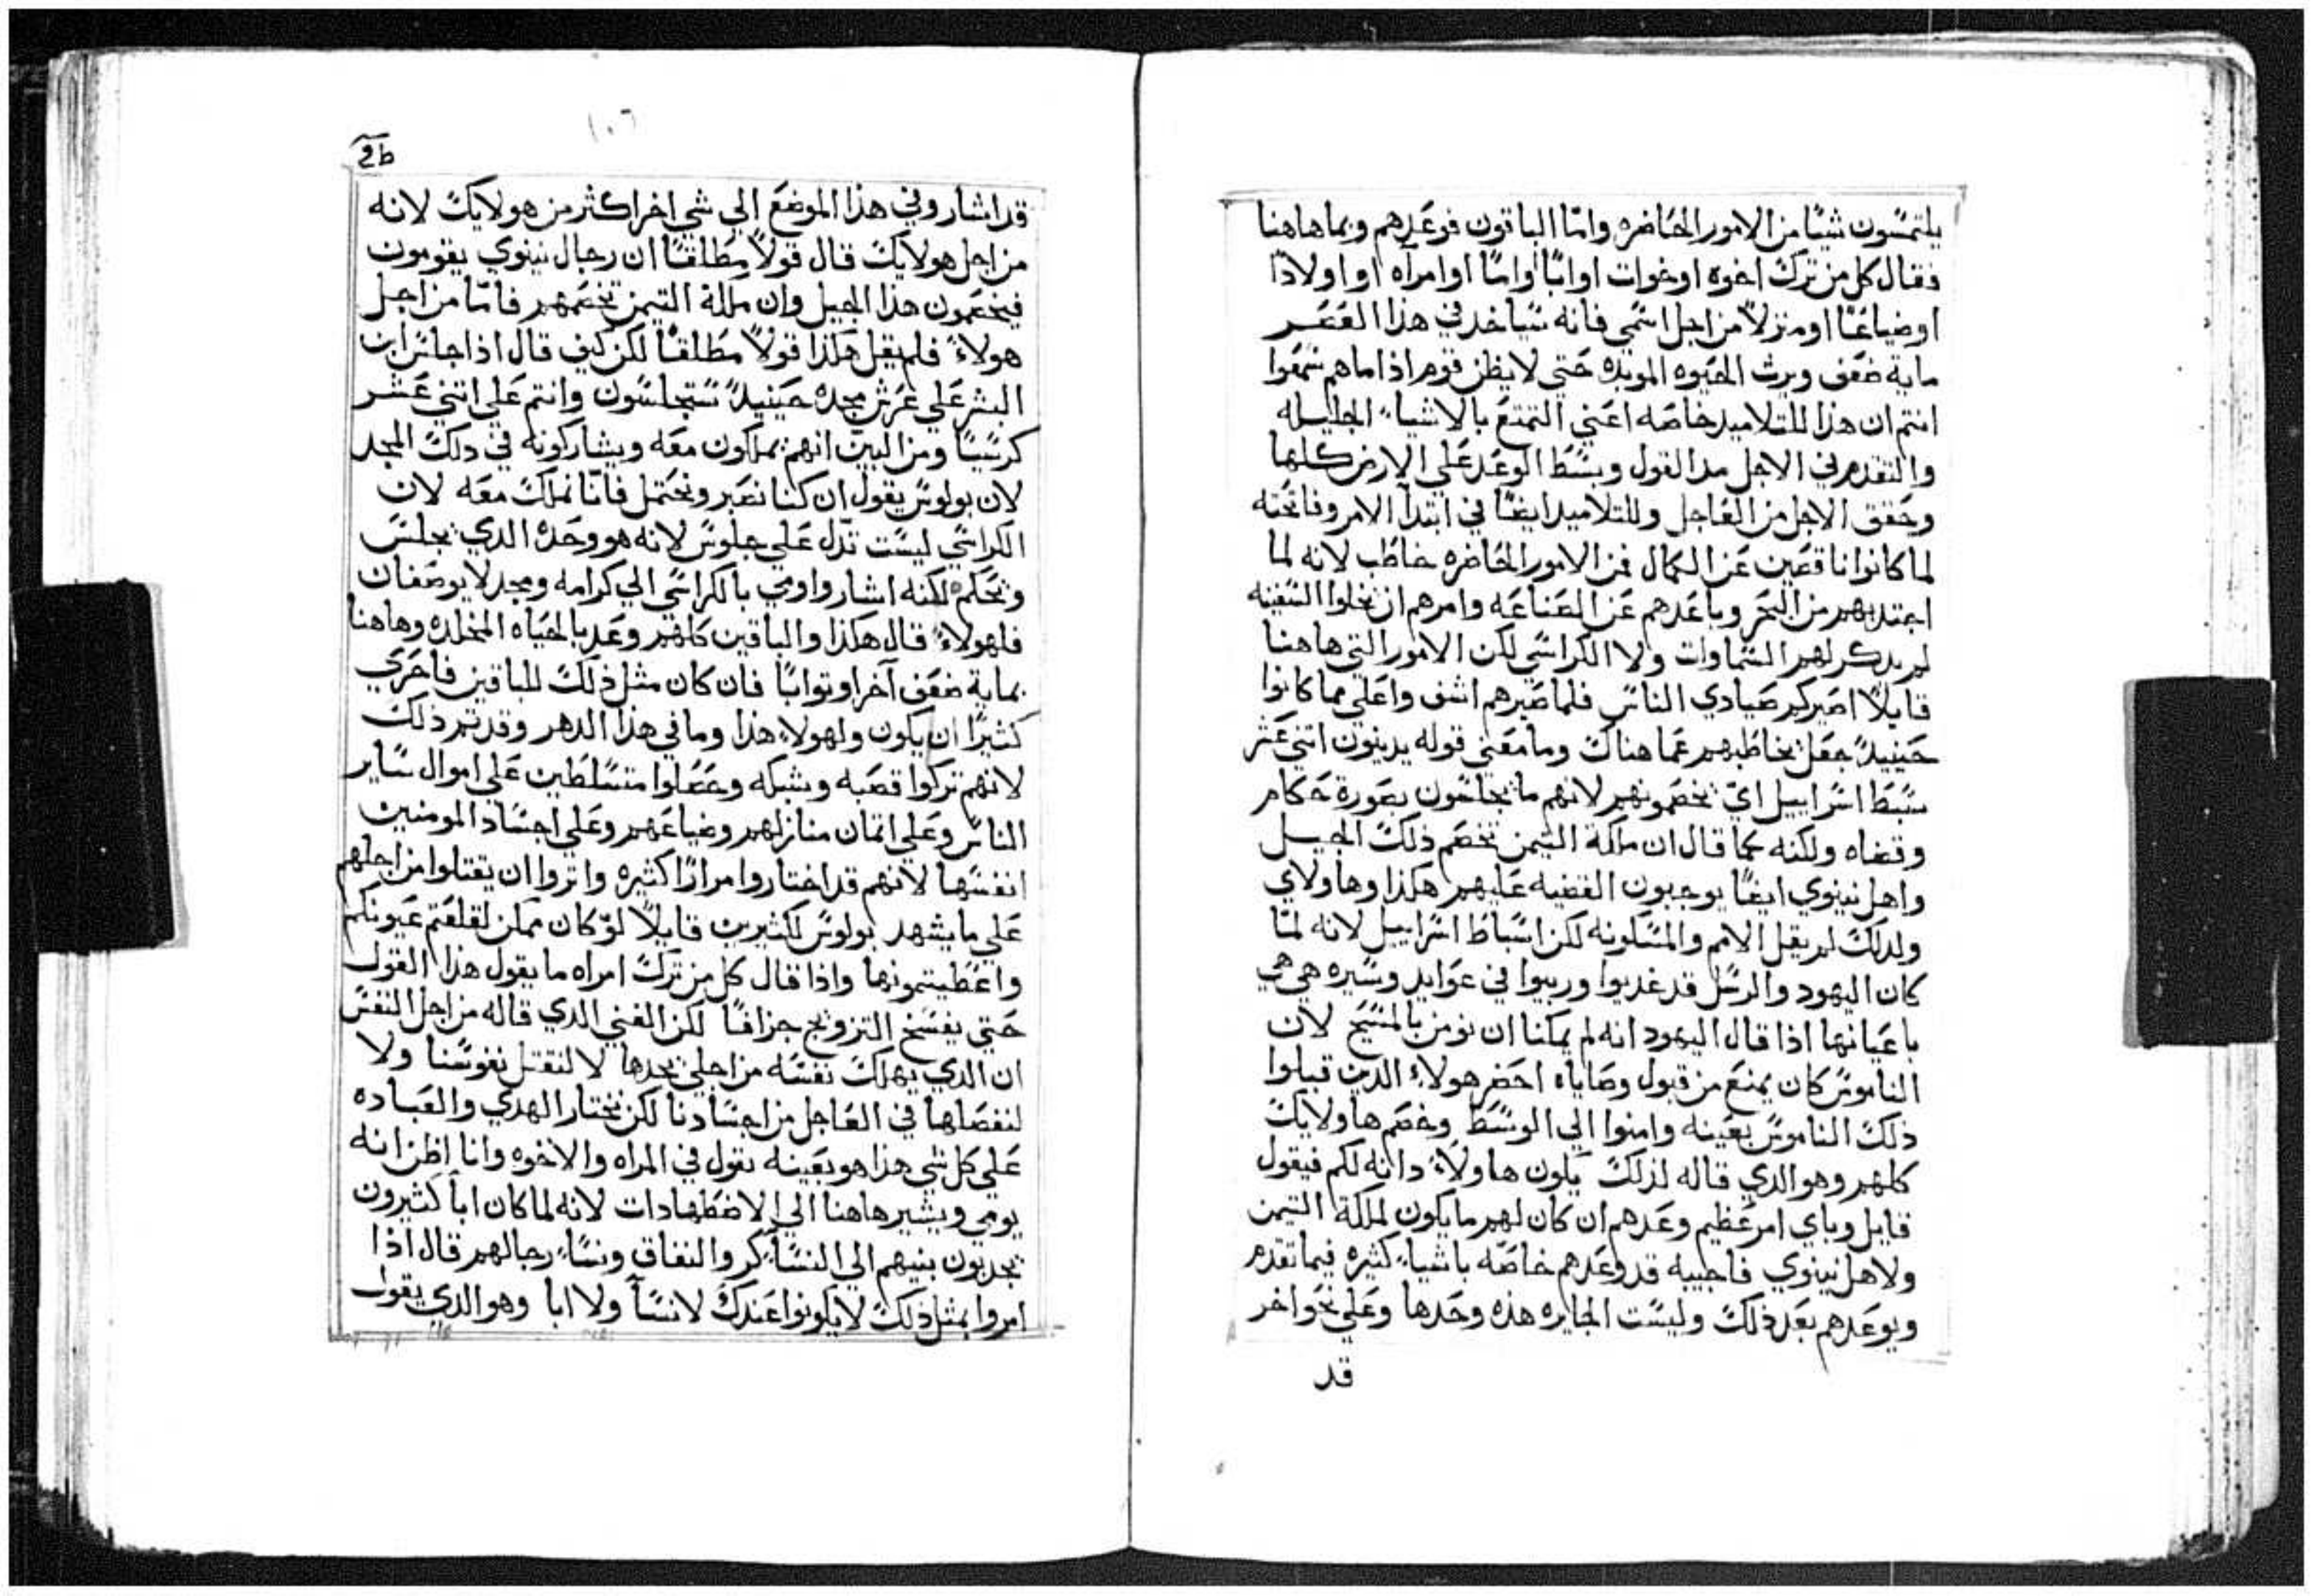 يلتمسون شيًا من الامور الحاضره وامّا الباقون فوعدهم وبما هاهنا
فقال كل من ترك اخوه او خوات او ابًا او امًا او امرآه او اولادًا
او ضياعًا او منزلاً من اجل اسمي فانه سياخد في هذا العصر
ماية ضعف ويرث الحيوه الموبده حتي لا يظن قوم اذا ما هم سمعوا
انتم ان هذا للتلاميد خاصه اعني التمتع بالاشياء الجليله
والتقدم في الاجل مد القول وبسط الوعد علي الارض كلها
وحقق الاجل من العاجل وللتلاميد ايضًا في ابتدآ الامر وفاتحته
لما كانوا ناقصين عن الكمال فمن الامور الحاضره خاطب لانه لما
اجتدبهم من البحر وباعدهم عن الصناعه وامرهم ان يخلوا السفينه
لم يدكر لهم السماوات ولا الكراسي لكن الامور التي هاهنا
قايلاً اصيركم صيادي الناس فلما صيرهم اشف واعلي مما كانوا
حينيدً جعل يخاطبهم عما هناك وما معني قوله يدينون اتني عشر
سبط اسراييل ايّ يخصمونهم لانهم ما يجلسون بصورة حكام
وقضاه ولكنه كما قال ان ملكة التيمن تخصم ذلك الجيل
واهل نينوي ايضًا يوجبون القضيه عليهم هكذا وهاولاي
ولدلك لم يقل الامم والمسكونه لكن اسباط اسراييل لانه لمّا
كان اليهود والرسل قد غديوا وربيوا في عوايد وسيره هي هي
باعيانها اذا قال اليهود انه لم يمكنا ان نومن بالمسيح لان
الناموس كان يمنع من قبول وصاياه احضر هولاء الدين قبلوا
ذلك الناموس بعينه وامنوا الي الوسط وخصم هاولايك
كلهم وهو الدي قاله لذلك يكون هاولاء دانه لكم فيقول
قايل وباي امر عظيم وعدهم ان كان لهم ما يكون لملكة التيمن
ولاهل نينوي فاجيبه قد وعدهم خاصّه باشياء كثيره فيما تقدم
ويوعدهم بعد ذلك وليست الجايره هذه وحدها وعلي نحو اخر
قد
١٠٦
قد اشار وفي هذا الموضع الي شي اخر اكثر من هولايك لانه
من اجل هولايك قال قولاً مطلقًا ان رجال نينوي يقومون
فيخصمون هذا الجيل وان ملكة التيمن تخصمهم فامّا من اجل
هولاء فلم يقل هكذا قولاً مطلقًا لكن كيف قال اذا جلس ابن
البشر علي عرش مجده حينيدً ستجلسون وانتم علي اتني عشر
كرسيًا ومن البيّن انهم يملكون معه ويشاركونه في دلك المجد
لان بولوس يقول ان كنا نصبر ونحتمل فانّا نملك معه لان
الكراسي ليست تدّل علي جلوس لانه هو وحده الدي يجلس
ويحكم لكنه اشار واومي بالكراسي الي كرامه ومجد لا يوصفان
فلهولاء قال هكذا والباقين كلهم وعد بالحياه المخلده وهاهنا
بماية ضعف آخر او توابًا فان كان مثل ذلك للباقين فاحري
كثيرًا ان يكون ولهولاء هذا وما في هذا الدهر وقد تم ذلك
لانهم تركوا قصبه وشبكه وحصلوا متسلطين علي اموال ساير
الناس وعلي اتمان منازلهم وضياعهم وعلي اجساد المومنين
انفسها لانهم قد اختاروا مرارًا كثيره واتروا ان يقتلوا من اجلهم
علي ما يشهد بولوس لكثيرين قايلاً لوّ كان ممكن لقلعتم عيونكم
واعطيتمونيها واذا قال كل من ترك امراه ما يقول هذا القول
حتي يفسخ التزويج جزافًا لكن الفني الدي قاله من اجل النفس
ان الدي يهلك نفسه من اجلي يجدها لا لنقتل نفوسنا ولا
لنفصلها في العاجل من اجسادنا لكن نختار الهدي والعباده
علي كل شي هذا هو بعينه نقول في المراه والاخوه وانا اظن انه
يومي ويشير هاهنا الي الاضطهادات لانه لما كان اباً كثيرون
يجدبون بنيهم الي النساء كر والنفاق ونساء رجالهم قال اذا
امروا بمثل ذلك لا يكونوا عندك لا نسآ ولا ابا وهو الدي يقول